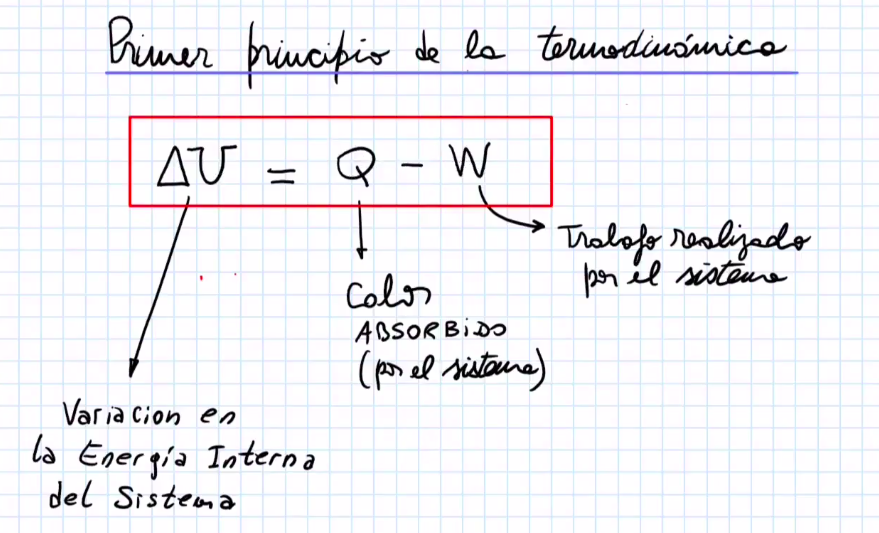 Primer principio de la termodinámica
ΔU = Q - W
Trabajo realizado
por el sistema
Calor
ABSORBiDO
(por el sistema)
Variacion en
la Energía Interna
del Sistema